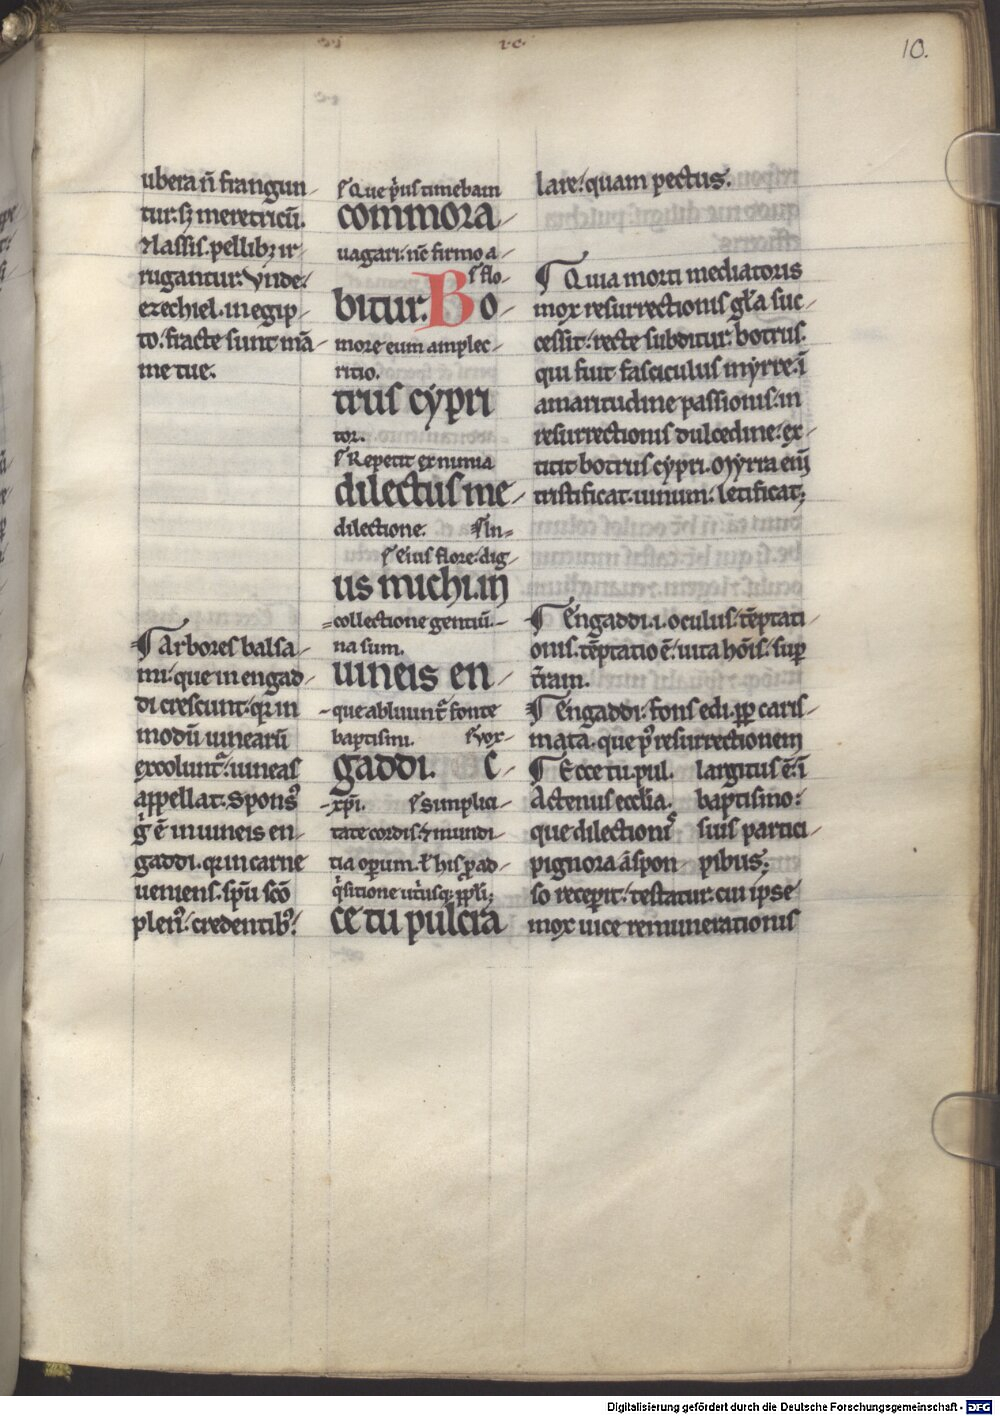 10.
ubera n̄ frangun
tur. sꝫ meretricū.
⁊ lassis. pellibꝫ ir
rugantur. Vnde.
ezechiel. in egip
to. fracte sunt mā
me tue.
Arbores balsa
mi. que in engad
di crescunt. qꝛ in
modū uinearū
excolunt᷑. uineas
appellat. Sponsꝰ
gͦ ē in uineis en
gaddi. qꝛ in carne
ueniens. spū scō
plenꝰ. credentibꝰ.
Que pͥus timebam
commora
uagari. nē firmo a
flo
bitur. Bo
more eum amplec
ritio.
trus cypri
tor.
Repetit ex nimia
dilectus me
dilectione. In
Eius flore. dig
us michi. in
collectione gentiū.
na sum.
uineis en
que abluunt᷑ fonte
baptismi. Vox
gaddi. E
xpī. simplici
tate cordis. ⁊ mundi
tia operum. ł his pͥad
qͥsitione utͥusqꝫ ppłi.
ce tu pulcra
lare. quam pectus.
Quia morti mediatoris
mox resurrectionis głɑ suc
cessit. recte subditur. botrus.
qui fuit fasciculus myrre. ī
amaritudine passionis. in
resurrectionis dulcedine. ex
titit botrus cypri. Myrra eni
tristificat. uinum. letificat;
Engaddi. i. oculus. tēptati
onis. tēptatio ē. uita hōis. sup
tͣram.
Engaddi. fons edi. ꝓp caris
mata. que pꝰ resurrectionem
Ecce tu pul. largitus ē. ī
Actenus ecclīa. baptismo.
que dilectionis suis partici
pignora a spon pibus;
so recepit. testatur. cui ipse
mox uice remunerationis
Digitalisierung gefördert durch die Deutsche Forschungsgemeinschaft - DFG